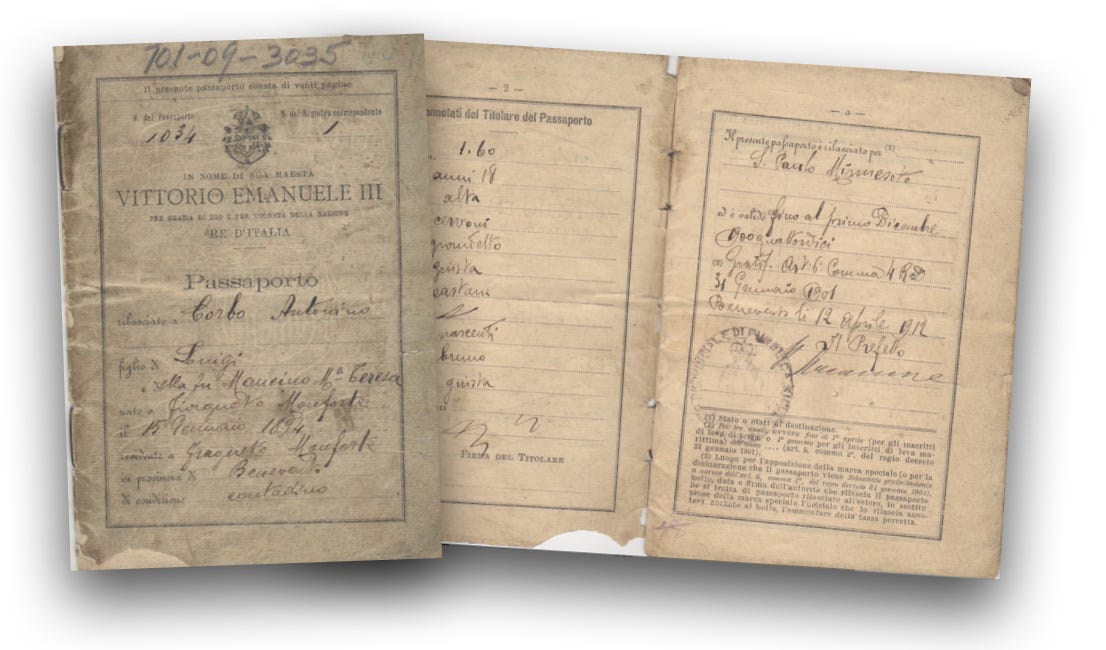 701-09-3035
Il presente passaporto consta di venti pagine
N. del Passaporto
N. del Registro corrispondente
1034
1
IN NOME DI SUA MAESTÀ
VITTORIO EMANUELE III
PER GRAZIA DI DIO E PER VOLONTÀ DELLA NAZIONE
RE D'ITALIA
Passaporto
rilasciato a Corbo Antonino
figlio di Luigi
e della fu Mancino Ma Teresa
nato a Fragneto Monforte
il 15 Gennaio 1894
residente a Fragneto Monforte
in provincia di Benevento
di condizione contadino
— 2 —
onnotati del Titolare del Passaporto
1.60
anni 18
alta
cervoni
grondetto
giusta
castani
nascenti
bruno
giusta
FIRMA DEL TITOLARE
Il presente passaporto è rilasciato per (1)
S. Paulo Minnesota
ed è valido fino al primo Dicembre
1900quattordici
(2) Gratis. Art 6 Comma 4 RD
31 Gennaio 1901
Benevento li 12 Aprile 1912
Il Prefetto
(1) Stato o Stati di destinazione.
(2) Per tre anni, ovvero fino al 1° aprile (per gli inscritti
di leva di terra o 1° gennaio per gli inscritti di leva ma-
rittima) dell'anno .... (art. 5, comma 2°, del regio decreto
31 gennaio 1901).
(3) Luogo per l'apposizione della marca speciale (o per la
dichiarazione che il passaporto viene rilasciato gratuitamente
a norma dell'art. 6, comma 4°, del regio decreto 31 gennaio 1901),
bollo, data e firma dell'autorità che rilascia il passaporto
Se si tratta di passaporto rilasciato all'estero, in sostitu
zione della marca speciale l'ufficiale che lo rilascia anno-
terà accanto al bollo, l'ammontare della tassa percetta.